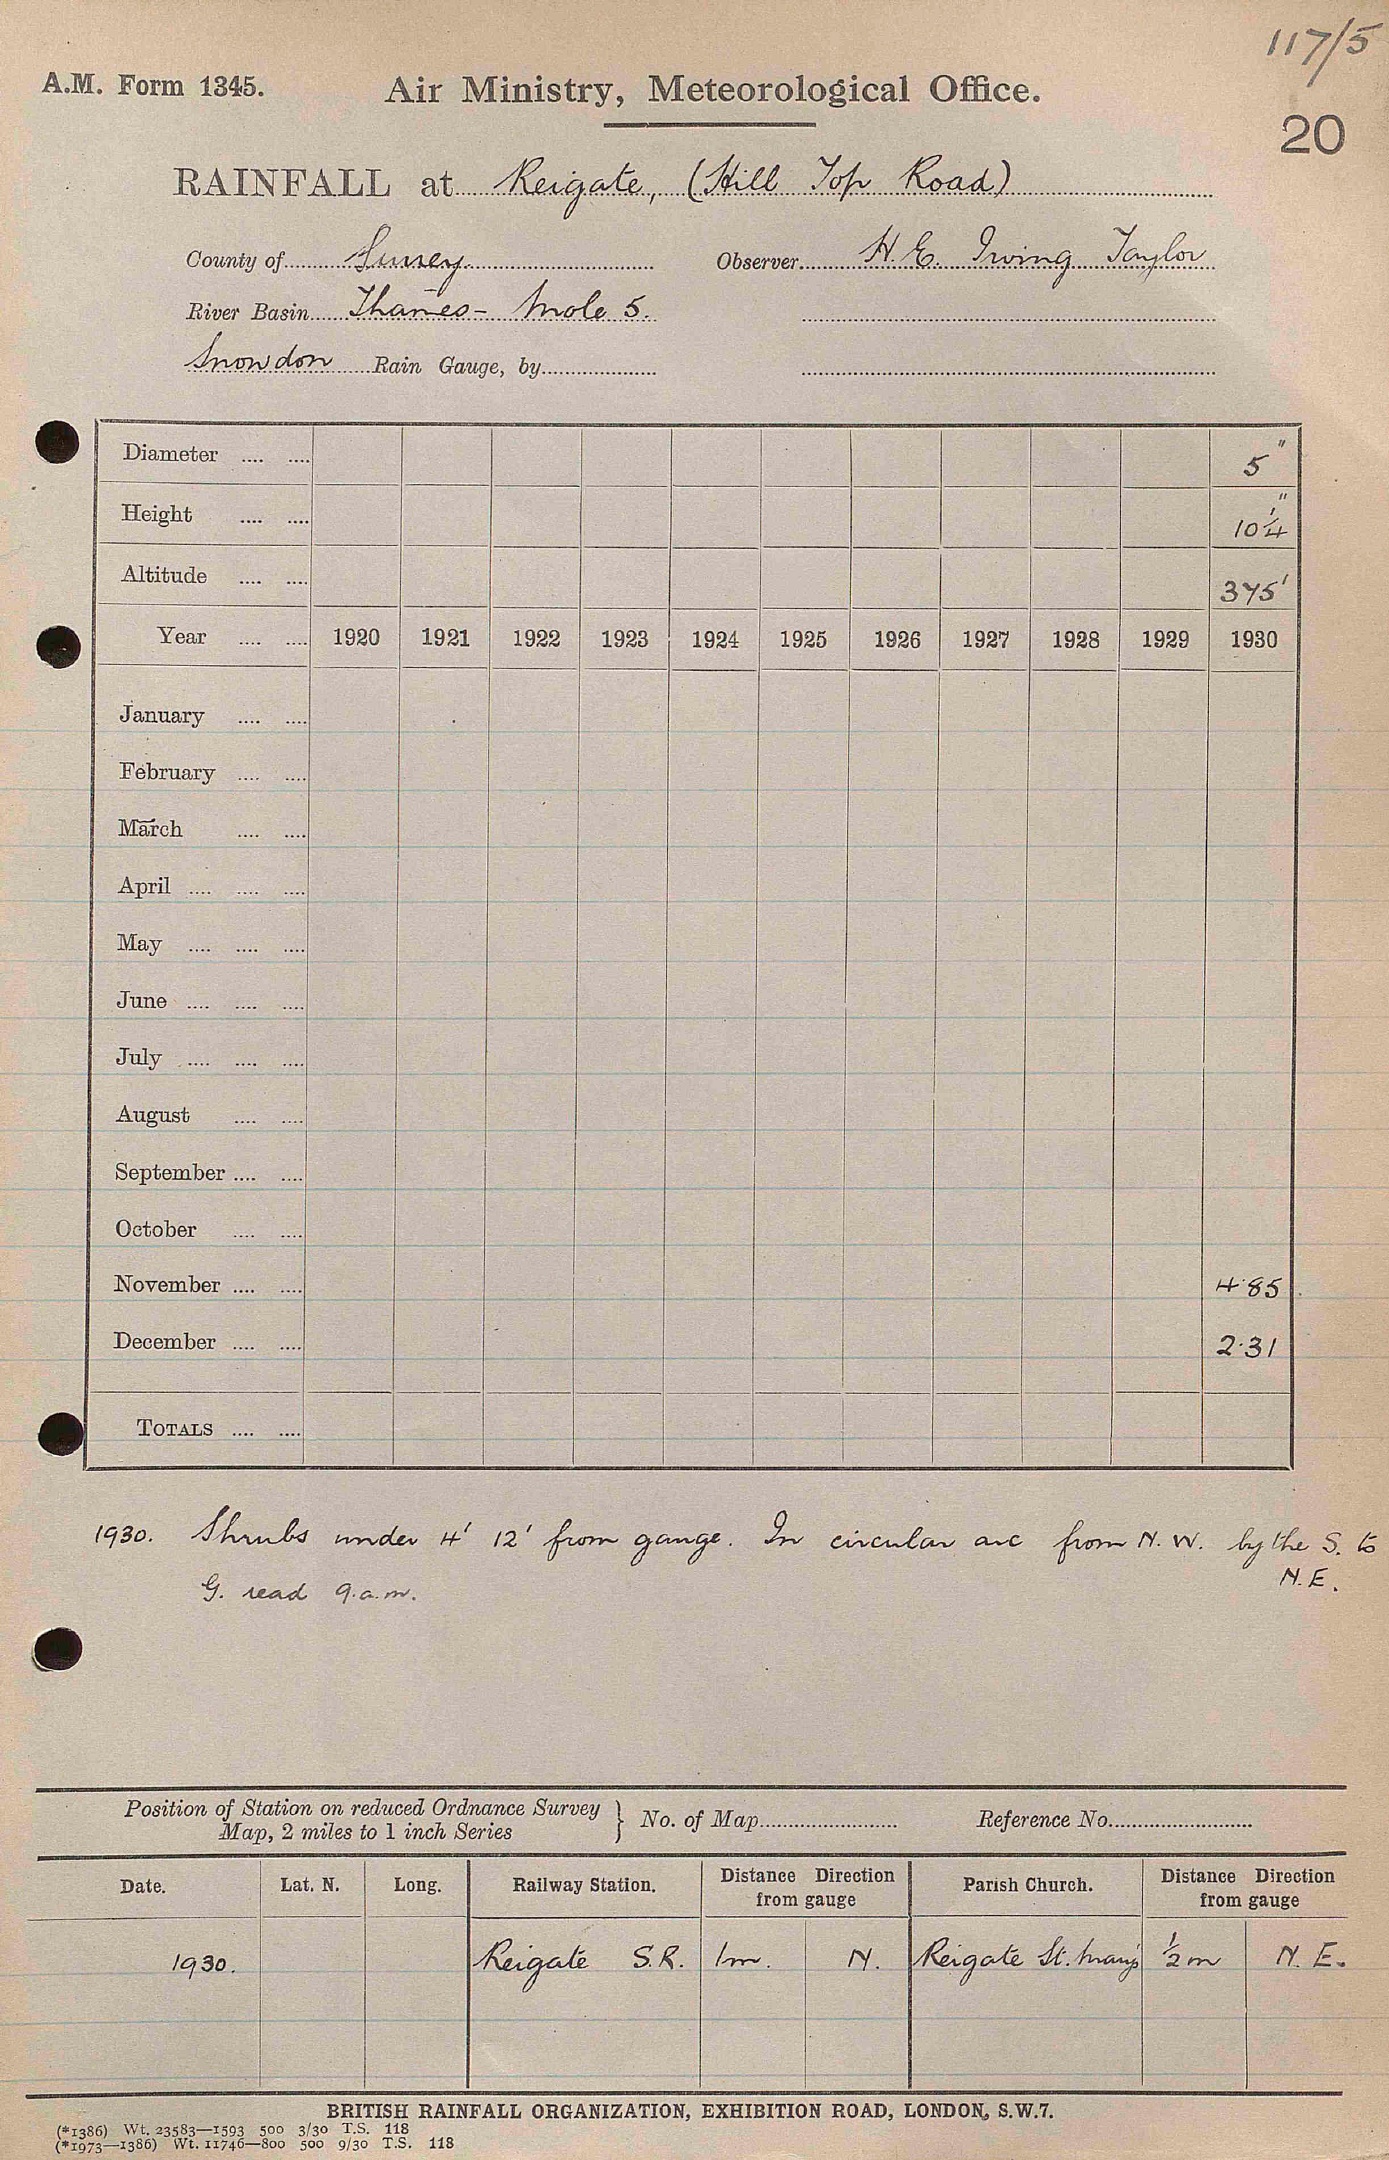 117/5
A.M. Form 1345.
Air Ministry, Meteorological Office.
20
RAINFALL at Reigate, (Hill Top Road)
County of Surrey. Observer H. E. Irving Taylor
River Basin Thames - Mole 5.
Snowdon Rain Gauge, by
Diameter 5"
Height 10¼"
Altitude 375'
Year 1920 1921 1922 1923 1924 1925 1926 1927 1928 1929 1930
January
February
March
April
May
June
July
August
September
October
November 4·85
December 2·31
TOTALS
1930. Shrubs under 4' 12' from gauge. In circular arc from N.W. by the S. to
N.E.
G. read 9.a.m.
Position of Station on reduced Ordnance Survey
Map, 2 miles to 1 inch Series } No. of Map Reference No.
Date. Lat. N. Long. Railway Station. Distance Direction from gauge Parish Church. Distance Direction from gauge
1930. Reigate S.R. 1m. N. Reigate St. Mary's ½m N.E.
BRITISH RAINFALL ORGANIZATION, EXHIBITION ROAD, LONDON, S.W.7.
(*1386) Wt. 23583—1593 500 3/30 T.S. 118
(*1973—1386) Wt. 11746—800 500 9/30 T.S. 118